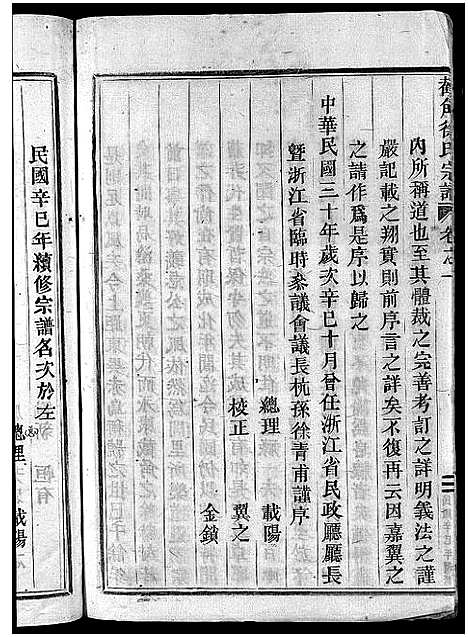 徐氏宗譜 卷之一
內所稱道也至其體裁之完善考訂之詳明義法之謹
嚴記載之翔實則前序言之詳矣不復再云因嘉翼之
之請作爲是序以歸之
中華民國三十年歲次辛巳十月曾任浙江省民政廳廳長
暨浙江省臨時參議會議長杭孫徐青甫謹序
總理 載陽
校正 翼之
金鎖
民國辛巳年續修宗譜名次於左
總理 載陽